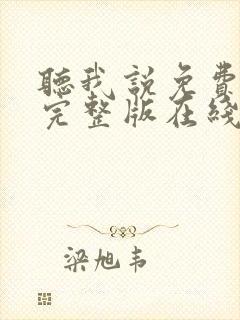 聽我說免費
完整版在綫
梁旭韦